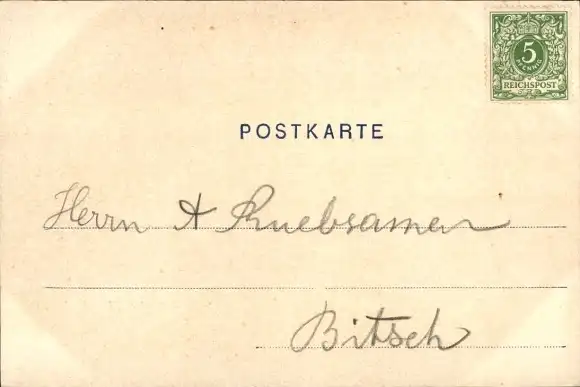 5
PFENNIG
REICHSPOST
POSTKARTE
Herrn A Ruebsamen
Bitsch